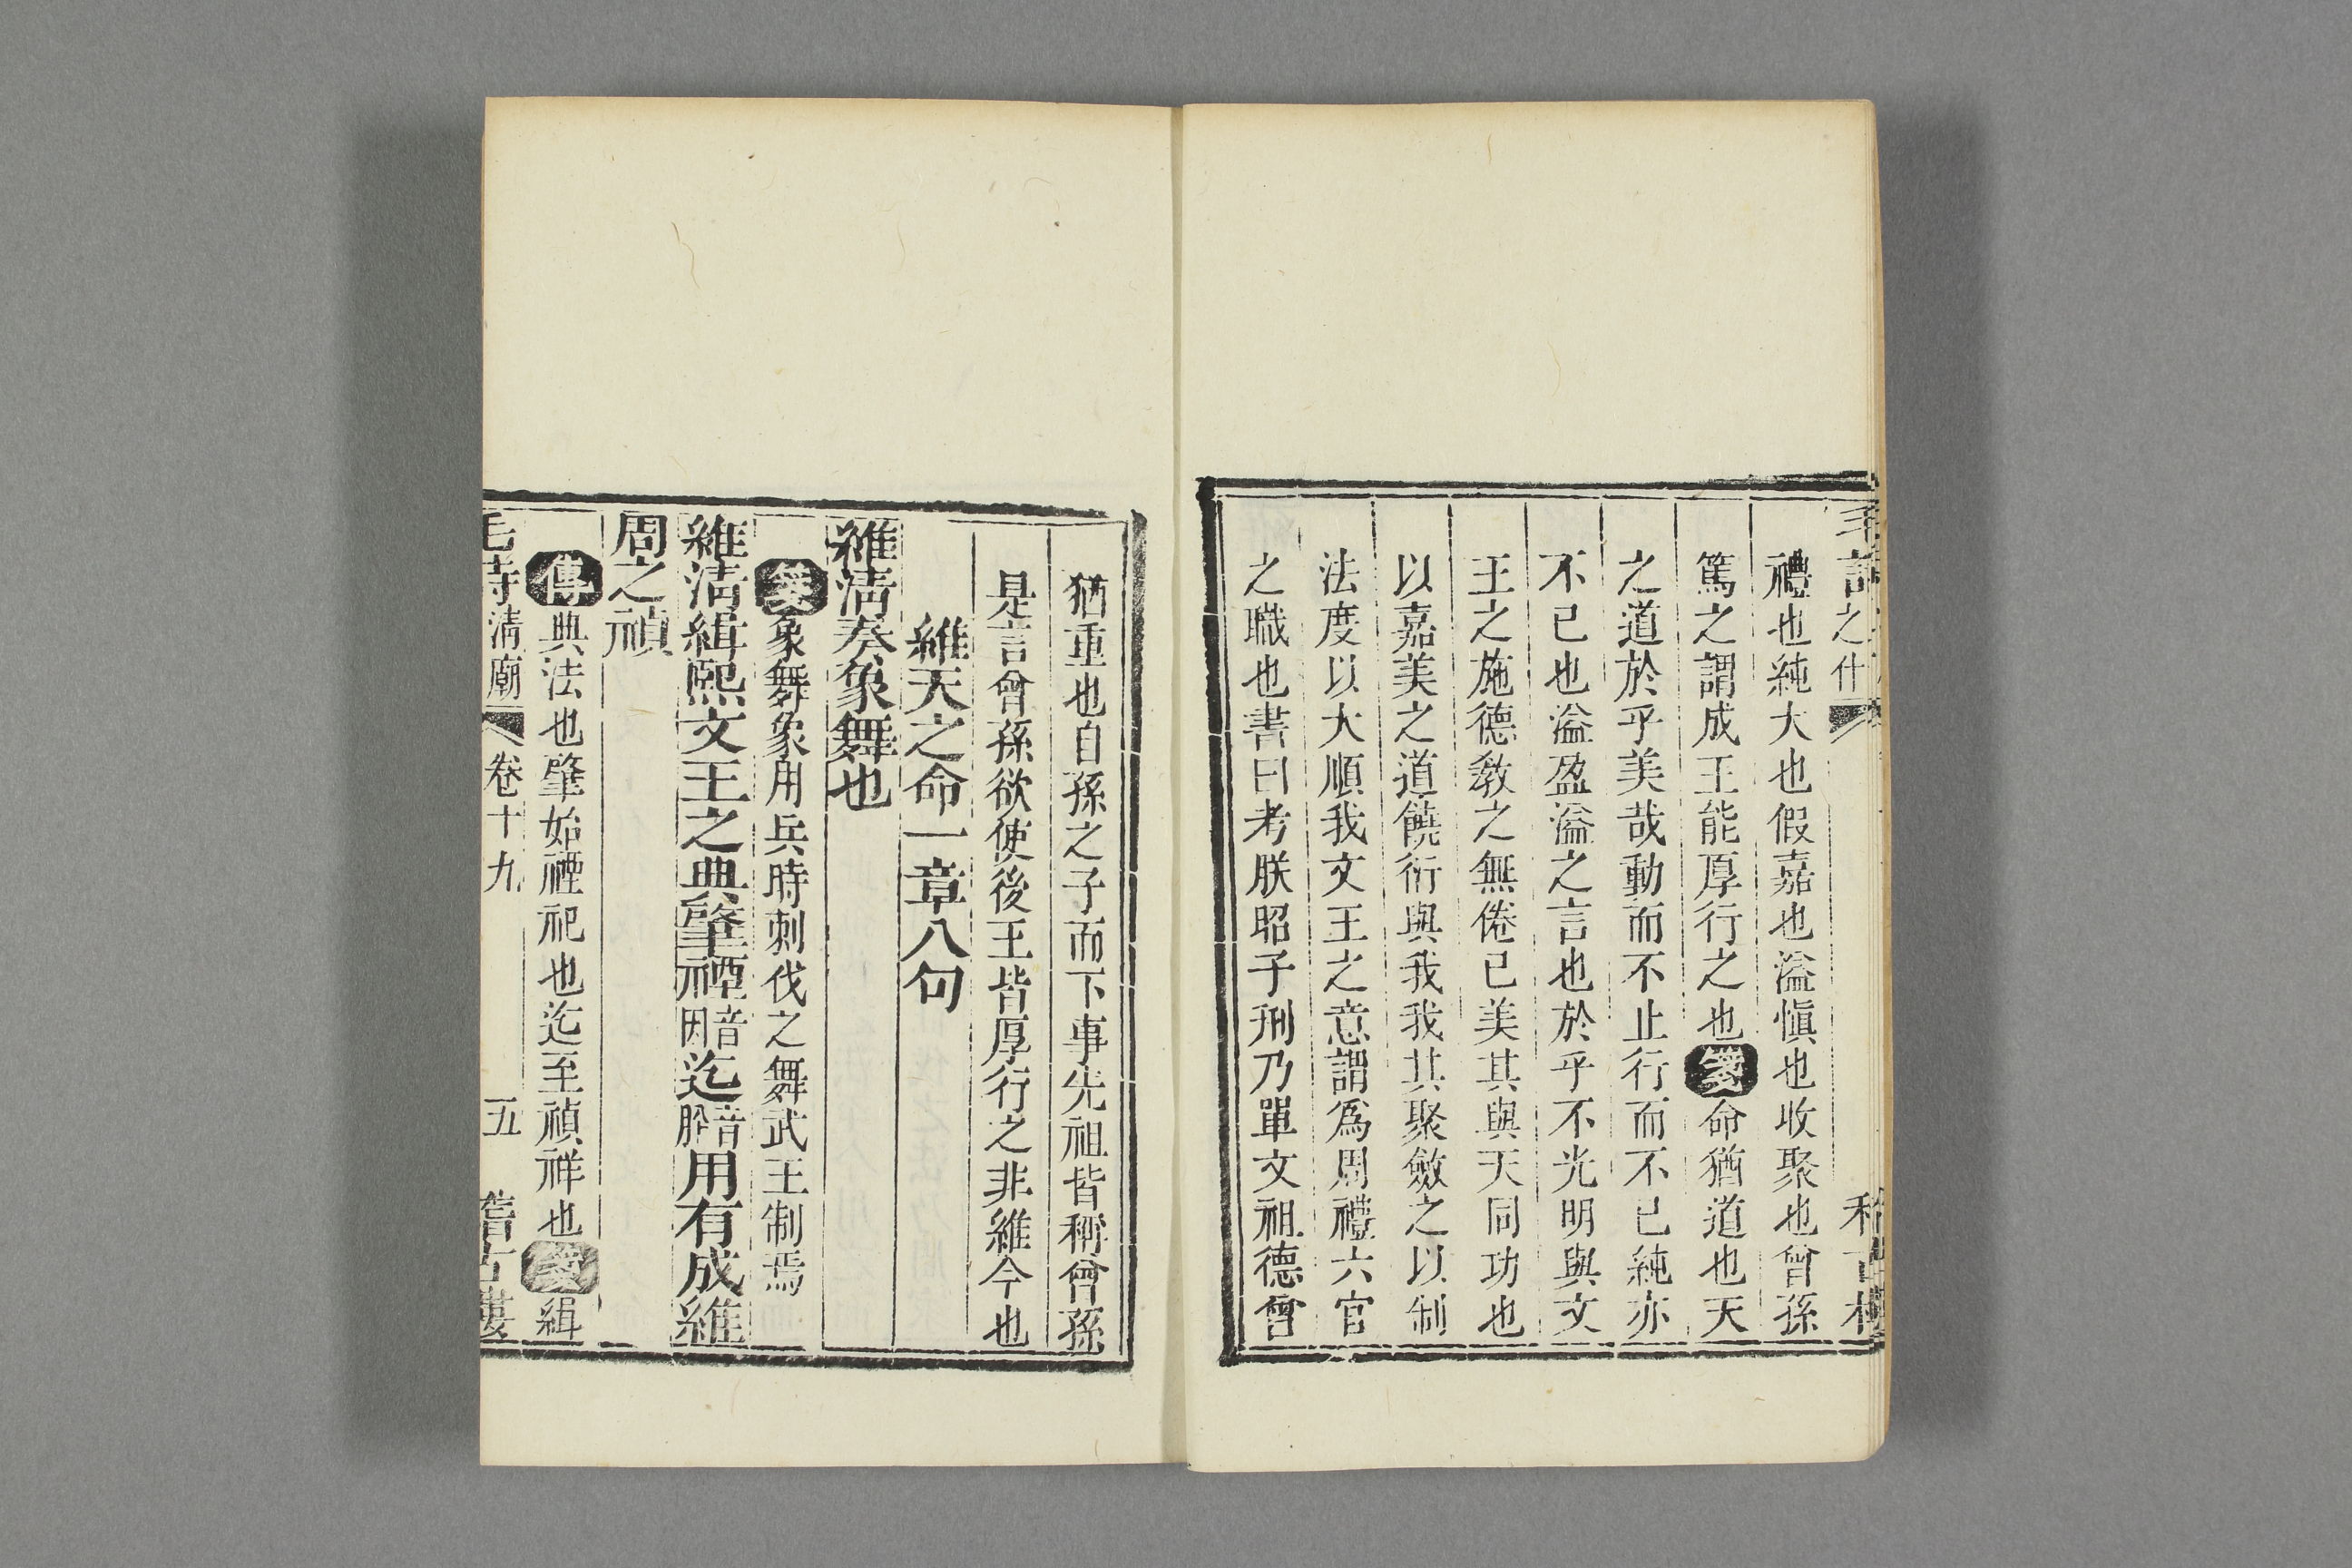 禮也純大也假嘉也溢愼也收聚也曾孫
篤之謂成王能厚行之也箋命猶道也天
之道於乎美哉動而不止行而不已純亦
不已也溢盈溢之言也於乎不光明與文
王之施德敎之無倦已美其與天同功也
以嘉美之道饒衍與我我其聚斂之以制
法度以大順我文王之意謂爲周禮六官
之職也書曰考朕昭子刑乃單文祖德曾
猶重也自孫之子而下事先祖皆稱曾孫
是言曾孫欲使後王皆厚行之非維今也
維天之命一章八句
維淸奏象舞也
箋象舞象用兵時刺伐之舞武王制焉
維淸緝熙文王之典肇禋音因迄音肸用有成維
周之禎
傳典法也肇始禋祀也迄至禎祥也箋緝
毛詩淸廟 卷十九 五